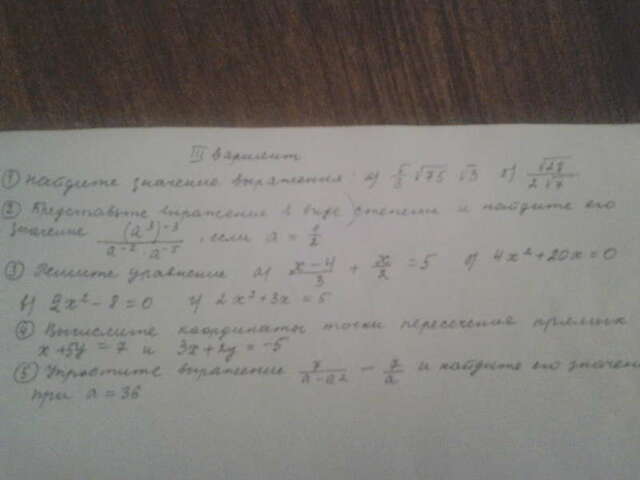 III вариант
① Найдите значение выражения: а) √75 √3 б) √28/(2√7).
② Представьте выражение в виде степени и найдите его
значение (a³)⁻³/(a⁻² · a⁻⁵), если a = 1/2
③ Решите уравнение а) (x-4)/3 + x/2 = 5 б) 4x² + 20x = 0
в) 2x² - 8 = 0 г) 2x² + 3x = 5
④ Вычислите координаты точки пересечения прямых
x + 5y = 7 и 3x + 2y = -5
⑤ Упростите выражение 7/(a - a²) - 7/a и найдите его значени
при a = 36